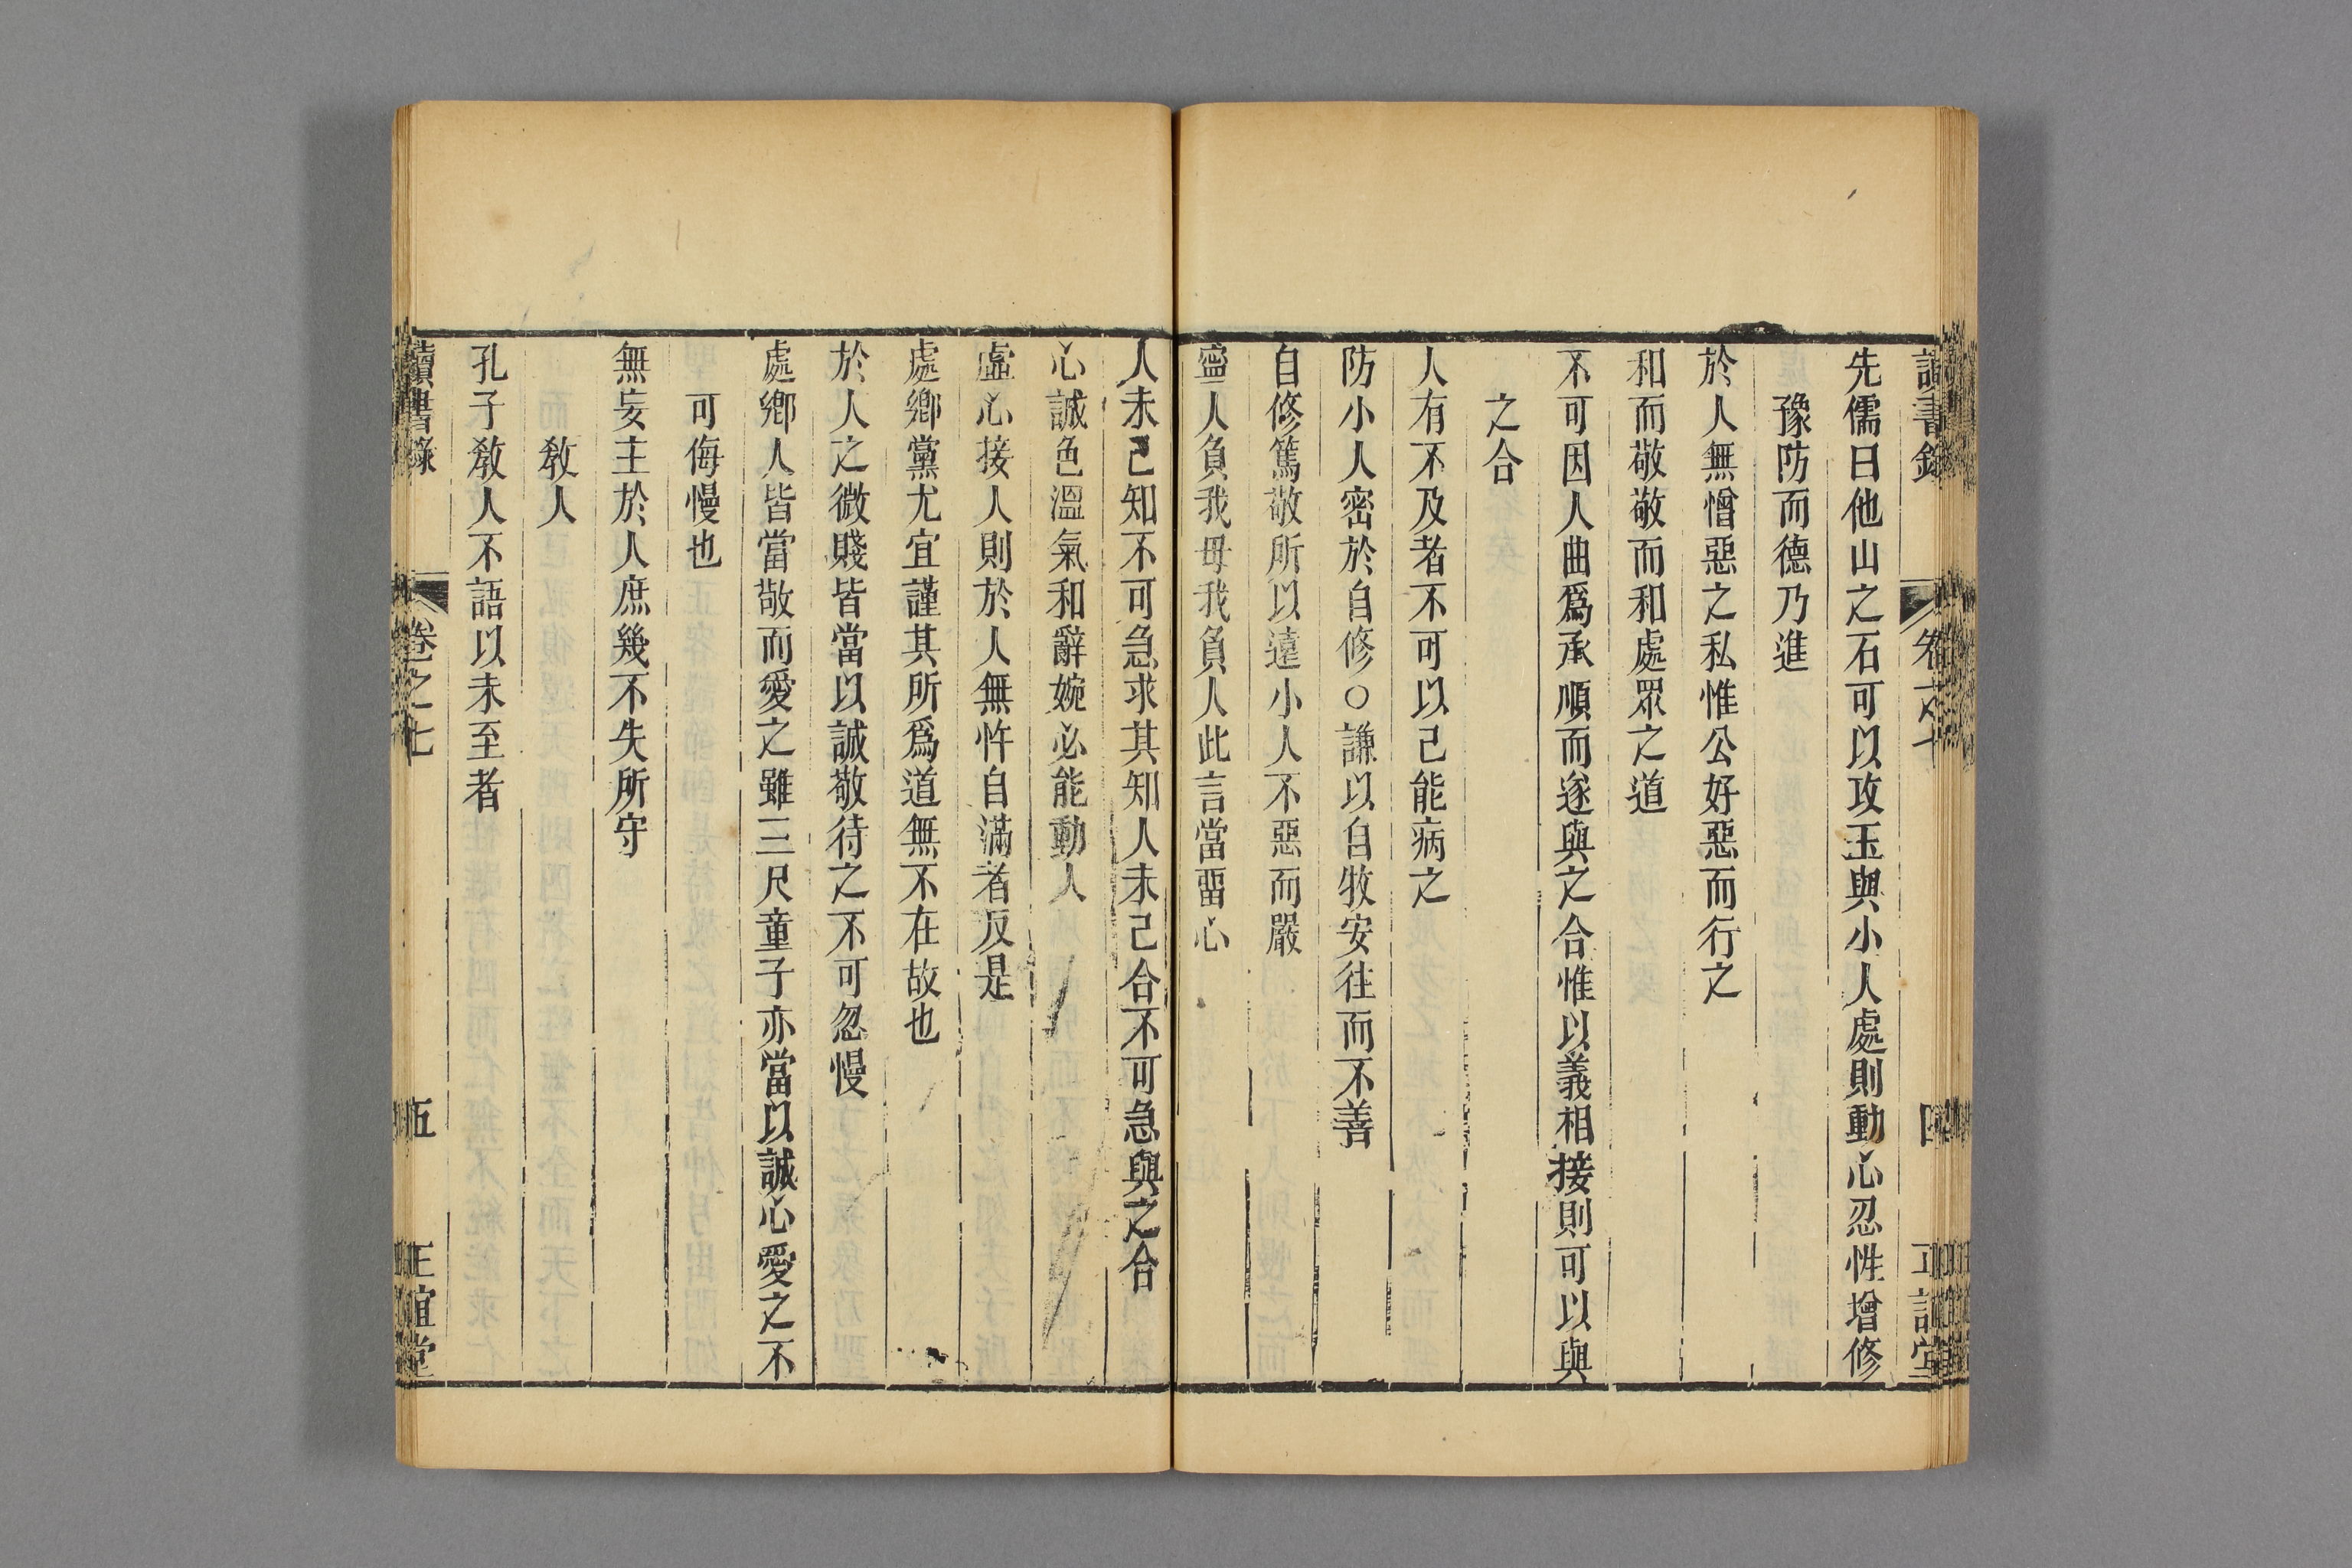 讀書錄 卷之七 四 正誼堂
先儒曰他山之石可以攻玉與小人處則動心忍性增修
豫防而德乃進
於人無憎惡之私惟公好惡而行之
和而敬敬而和處眾之道
不可因人曲爲承順而遂與之合惟以義相接則可以與
之合
人有不及者不可以己能病之
防小人密於自修○謙以自牧安往而不善
自修篤敬所以遠小人不惡而嚴
寧人負我毋我負人此言當畱心
人未己知不可急求其知人未己合不可急與之合
心誠色溫氣和辭婉必能動人
虛心接人則於人無忤自滿者反是
處鄉黨尤宜謹其所爲道無不在故也
於人之微賤皆當以誠敬待之不可忽慢
處鄉人皆當敬而愛之雖三尺童子亦當以誠心愛之不
可侮慢也
無妄主於人庶幾不失所守
教人
孔子教人不語以未至者
讀書錄 卷之七 五 正誼堂